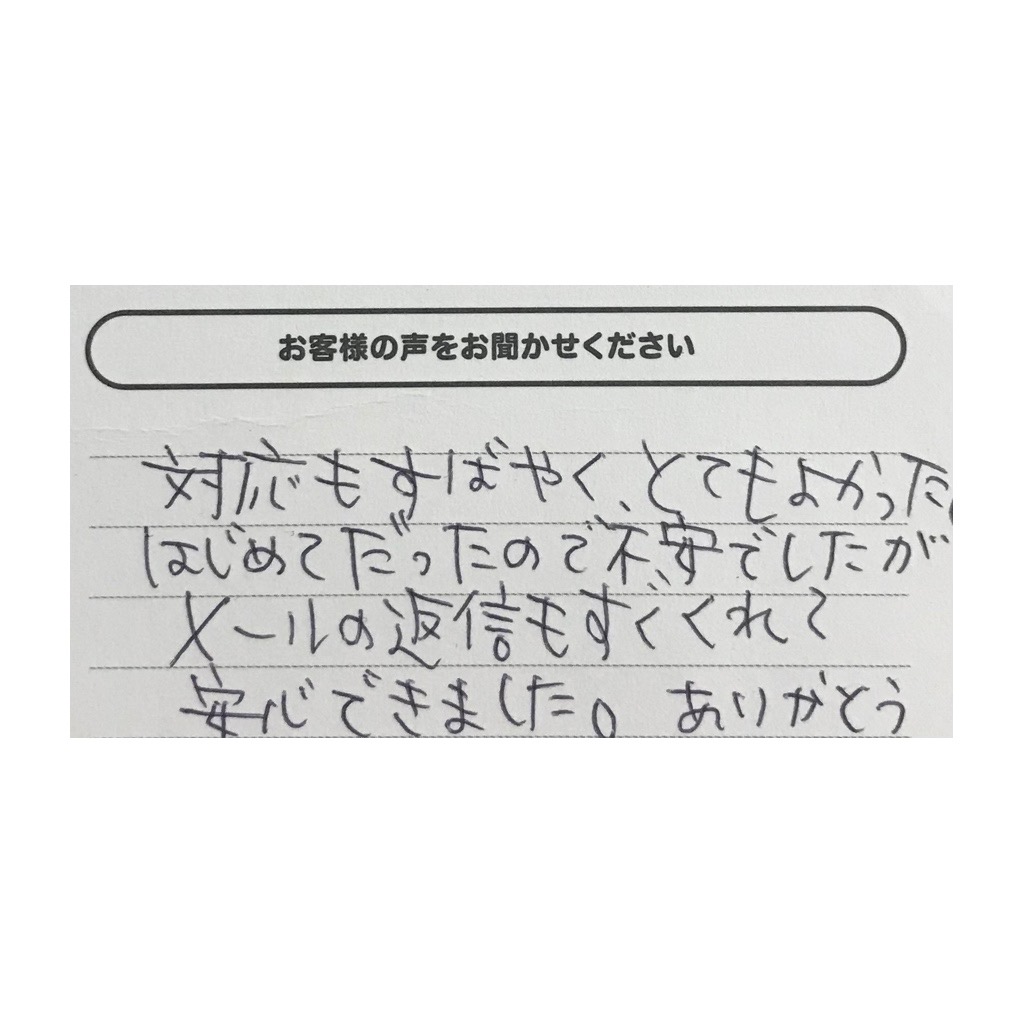 お客様の声をお聞かせください
対応もすばやく、とてもよかった
はじめてだったので不安でしたが
メールの返信もすぐくれて
安心できました。ありがとう